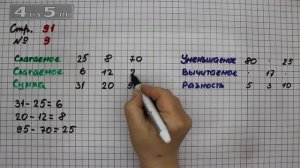 Стр. 91
№ 9
Слагаемое 25 8 70
Слагаемое 6 12 2
Сумма 31 20
Уменьшаемое 80 . 25
Вычитаемое . 17 .
Разность 5 3 10
31-25=6
20-12=8
95-70=25